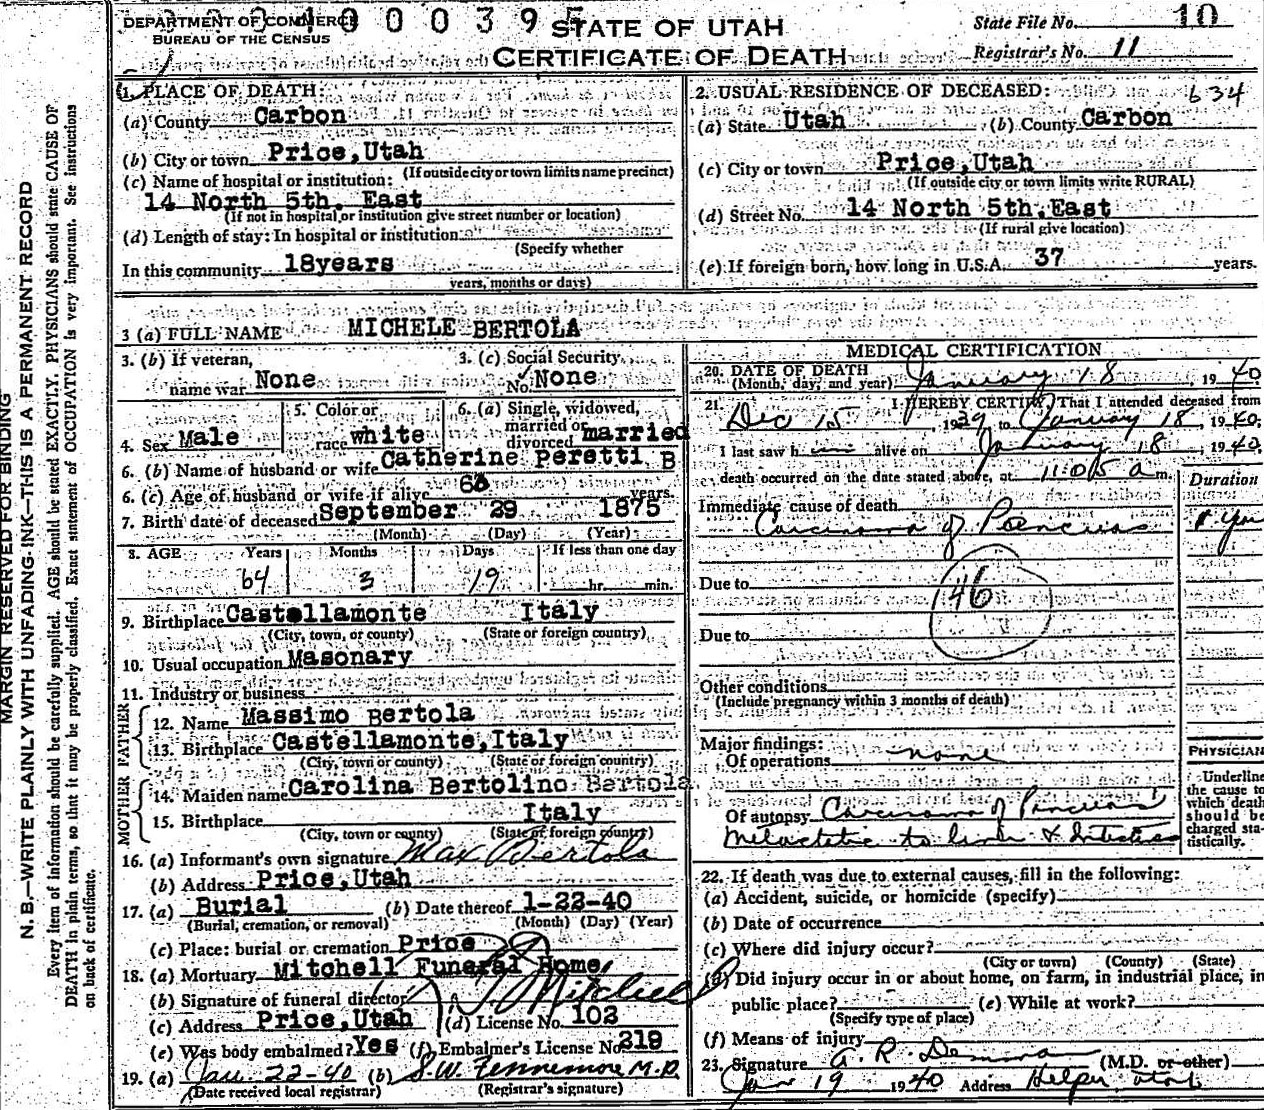 DEPARTMENT OF COMMERCE
BUREAU OF THE CENSUS
STATE OF UTAH
CERTIFICATE OF DEATH
State File No. 10
Registrar's No. 11
MARGIN RESERVED FOR BINDING
N. B.—WRITE PLAINLY WITH UNFADING INK—THIS IS A PERMANENT RECORD
Every item of information should be carefully supplied. AGE should be stated EXACTLY. PHYSICIANS should state CAUSE OF
DEATH in plain terms, so that it may be properly classified. Exact statement of OCCUPATION is very important. See instructions
on back of certificate.
1. PLACE OF DEATH:
(a) County Carbon
(b) City or town Price,Utah
(If outside city or town limits name precinct)
(c) Name of hospital or institution:
14 North 5th. East
(If not in hospital or institution give street number or location)
(d) Length of stay: In hospital or institution
(Specify whether
In this community 18years
years, months or days)
2. USUAL RESIDENCE OF DECEASED: 634
(a) State Utah (b) County Carbon
(c) City or town Price,Utah
(If outside city or town limits write RURAL)
(d) Street No. 14 North 5th.East
(If rural give location)
(e) If foreign born, how long in U.S.A. 37 years.
3 (a) FULL NAME MICHELE BERTOLA
3. (b) If veteran, 3. (c) Social Security
name war None No. None
4. Sex Male 5. Color or race white 6. (a) Single, widowed, married or divorced married
6. (b) Name of husband or wife Catherine Peretti B
6. (c) Age of husband or wife if alive years.
7. Birth date of deceased September 29 1875
(Month) (Day) (Year)
8. AGE Years Months Days If less than one day
64 3 19 hr. min.
9. Birthplace Castellamonte Italy
(City, town, or county) (State or foreign country)
10. Usual occupation Masonary
11. Industry or business
FATHER
12. Name Massimo Bertola
13. Birthplace Castellamonte,Italy
(City, town or county) (State or foreign country)
MOTHER
14. Maiden name Carolina Bertolino Bertola
15. Birthplace Italy
(City, town or county) (State or foreign country)
16. (a) Informant's own signature Max Bertola
(b) Address Price,Utah
17. (a) Burial (b) Date thereof 1-22-40
(Burial, cremation, or removal) (Month) (Day) (Year)
(c) Place: burial or cremation Price
18. (a) Mortuary Mitchell Funeral Home
(b) Signature of funeral director Mitchell
(c) Address Price,Utah (d) License No. 102
(e) Was body embalmed? Yes (f) Embalmer's License No. 219
19. (a) Jan. 22-40 (b) S.W. Fennemore M.D.
(Date received local registrar) (Registrar's signature)
MEDICAL CERTIFICATION
20. DATE OF DEATH
(Month, day, and year) January 18, 1940
21. I HEREBY CERTIFY That I attended deceased from
Dec 15, 1939 to January 18, 1940
I last saw h alive on January 18, 1940
death occurred on the date stated above, at 11:05 a m.
Duration
Immediate cause of death
Carcinoma of Pancreas
Due to 46
Due to
Other conditions
(Include pregnancy within 3 months of death)
Major findings:
Of operations none
Of autopsy Carcinoma of Pancreas
to liver &
PHYSICIAN
Underline
the cause to
which death
should be
charged sta-
tistically.
22. If death was due to external causes, fill in the following:
(a) Accident, suicide, or homicide (specify)
(b) Date of occurrence
(c) Where did injury occur?
(City or town) (County) (State)
(d) Did injury occur in or about home, on farm, in industrial place, in
public place? (e) While at work?
(Specify type of place)
(f) Means of injury
23. Signature A. R. Demman (M.D. or other)
Jan 19 1940 Address Helper Utah